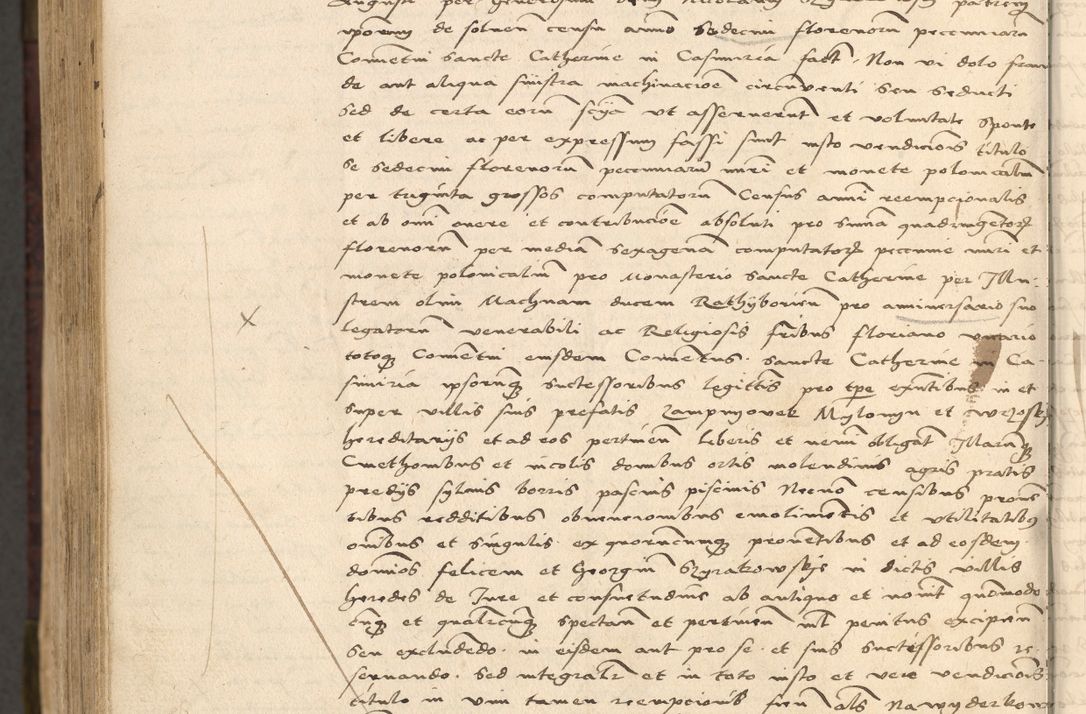 Augusti per generosum
ipsorum de solven censu anno Sedecim florenorum pecuniarum
Conventui Sancte Catherine in Casimiria fact. Non vi dolo
de aut aliqua sinistra machinacioē circūventi seu seducti
Sed de certa eorū scīa ut asserverunt et voluntate sponte
et libere ac per expressum fassi sunt iusto vendicionis titulo
se sedecim florenorū pecuniarū nūri et monete polonicaliū
per triginta grossos computatorū Census annui reempcionalis
et ab omī onere et contribucioē absoluti pro summa quadringetorum
florenorū per mediā sexagenā computatorum pecunie nūri et
monete polonicaliū pro Monasterio Sancte Catherine per Illu-
strem olim Machnam ducem Rathyborien pro anniversario suo
legatorū venerabili ac Religiosis fribus floriano
totoque Conventui eiusdem Conventus Sancte Catherine in Ca-
simiria ipsorumque successoribus legittis pro tpe exntibus in et
super villis suis prefatis Zampnyovek Mylonyn et
hereditariis et ad eos pertinen liberis et nemi obligat Illarumque
Cmethonibus et incolis domibus ortis molendinis agris pratis
predijs sylvis borris pascuis piscinis Necnō censibus proven
tibus redditibus obvencionibus emolimetis et utilitatibus
omibus et singulis ex quorumcumque proventibus et ad eosdem
domios felicem et Georgiū Szyrakowskye in dictis villis
heredes de Iure et consuetudine ab antiquo et novit quomodo
cūque et qualitercūque spectan et pertinen nil penitus excipien
seu excludedo in eisdem aut pro se et suis successoribus re-
servando Sed integralr et in toto iusto et vero vendicionis
titulo in vim tamen reempcionis fien als Nawyderkow